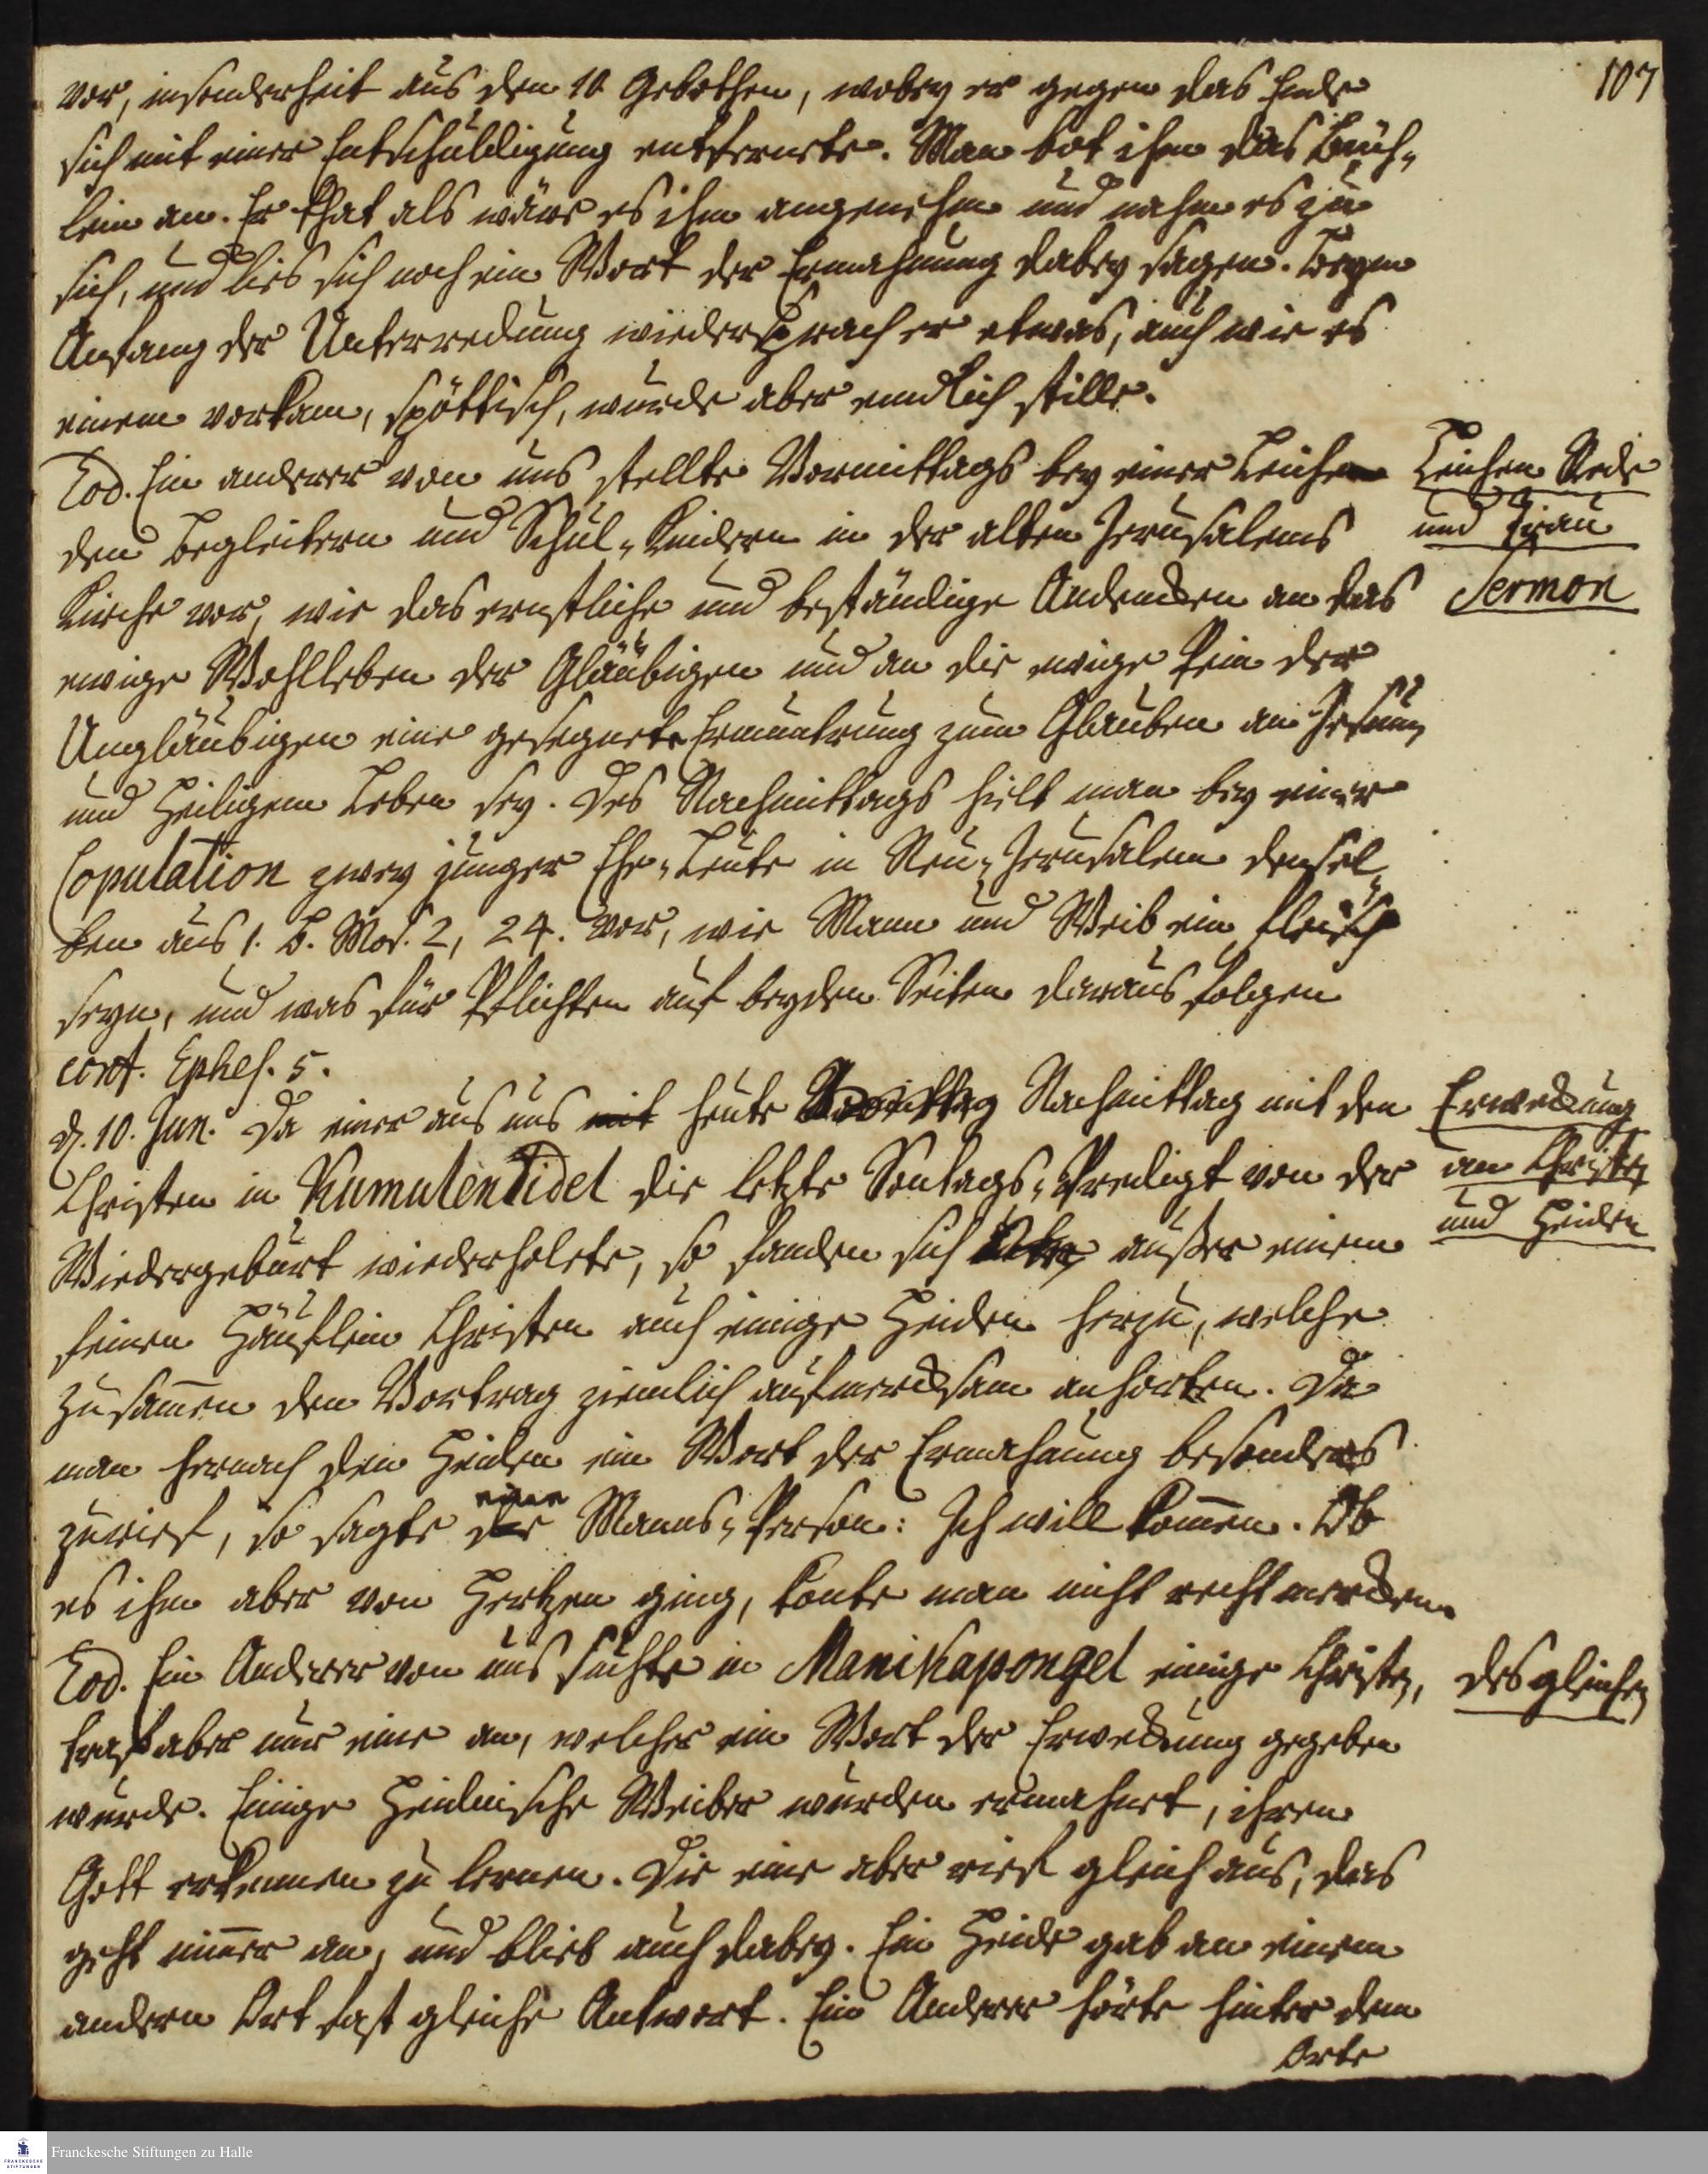 107
vor, insonderheit aus den 10 Gebothen, wobey er gegen das Ende
sich mit einer Entschuldigung entfernete. Man bot ihm das Büch-
lein an. Er that als wäre es ihm angenehm und nahm es zu
sich, und lies sich noch ein Wort der Ermahnung dabey sagen. Beym
Anfang der Unterredung wiedersprach er etwas, auch wie es
einem vorkam, spöttisch, wurde aber endlich stille.
Eod. Ein anderer von uns stellte Vormittags bey einer Leiche
Leichen Rede
den Begleitern und Schul-Kindern in der alten Jerusalems
und Trau
Kirche vor, wie das ernstliche und beständige Andencken an das
Sermon
ewige Wohlleben der Gläubigen und an die ewige Pein der
Ungläubigen eine gesegnete Ermuntrung zum Glauben an Jesum
und Heiligem Leben sey. Des Nachmittags hielt man bey einer
Copulation zwey junger Ehe-Leute in Neu-Jerusalem densel-
ben aus 1. B. Mos. 2, 24. vor, wie Mann und Weib ein Fleisch
seyn, und was für Pflichten auf beyden Seiten daraus folgen
conf. Ephes. 5.
d. 10. Jun. Da einer aus uns mit heute Nachmittag mit den
Erweckung
Christen in Kumulentidel die letzte Sontags-Predigt von der
an Christen
Wiedergeburt wiederholete, so fanden sich außer einem
und Heiden
feinen Häuflein Christen auch einige Heiden herzu, welche
zusamen den Vortrag ziemlich aufmercksam anhörten. Da
man hernach den Heiden ein Wort der Ermahnung besonders
zurief, so sagte eine Manns-Person: Ich will komen. Ob
es ihm aber von Hertzen ging, konte man nicht recht mercken.
Eod. Ein Anderer von uns suchte in Manikapongel einige Christen,
desgleichen
traf aber nur eine an, welcher ein Wort der Erweckung gegeben
wurde. Einige Heidnische Weiber wurden ermahnet, ihren
Gott erkennen zu lernen. Die eine aber rief gleich aus, das
geht nimer an, und blieb auch dabey. Ein Heide gab an einem
andern Ort fast gleiche Antwort. Ein Anderer hörte hinter dem
Orte
Franckesche Stiftungen zu Halle